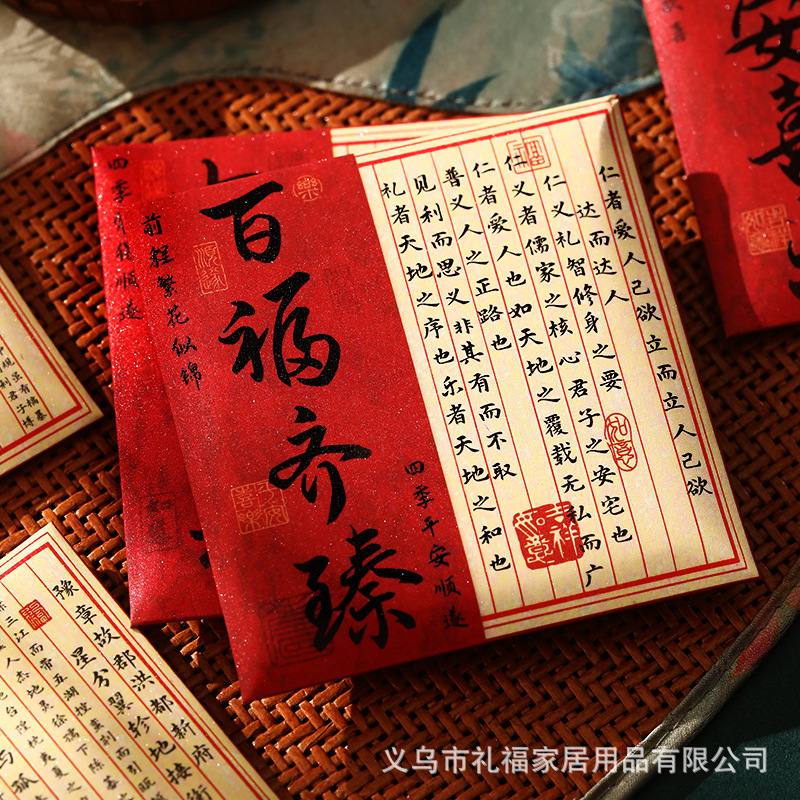 百福齐臻
前程繁花似锦
四季平安顺遂
樂
顺遂
仁者爱人己欲立而立人己欲
达而达人
仁义礼智修身之要
仁义者儒家之核心君子之安宅也
仁者爱人也如天地之覆载无私而广
普义人之正路也
见利而思义非其有而不取
礼者天地之序也乐者天地之和也
如意
吉祥如意
四季平安顺遂
喜
豫章故郡洪都新府
星分翼轸地接衡
三江而带五湖控蛮荆而引瓯
义乌市礼福家居用品有限公司